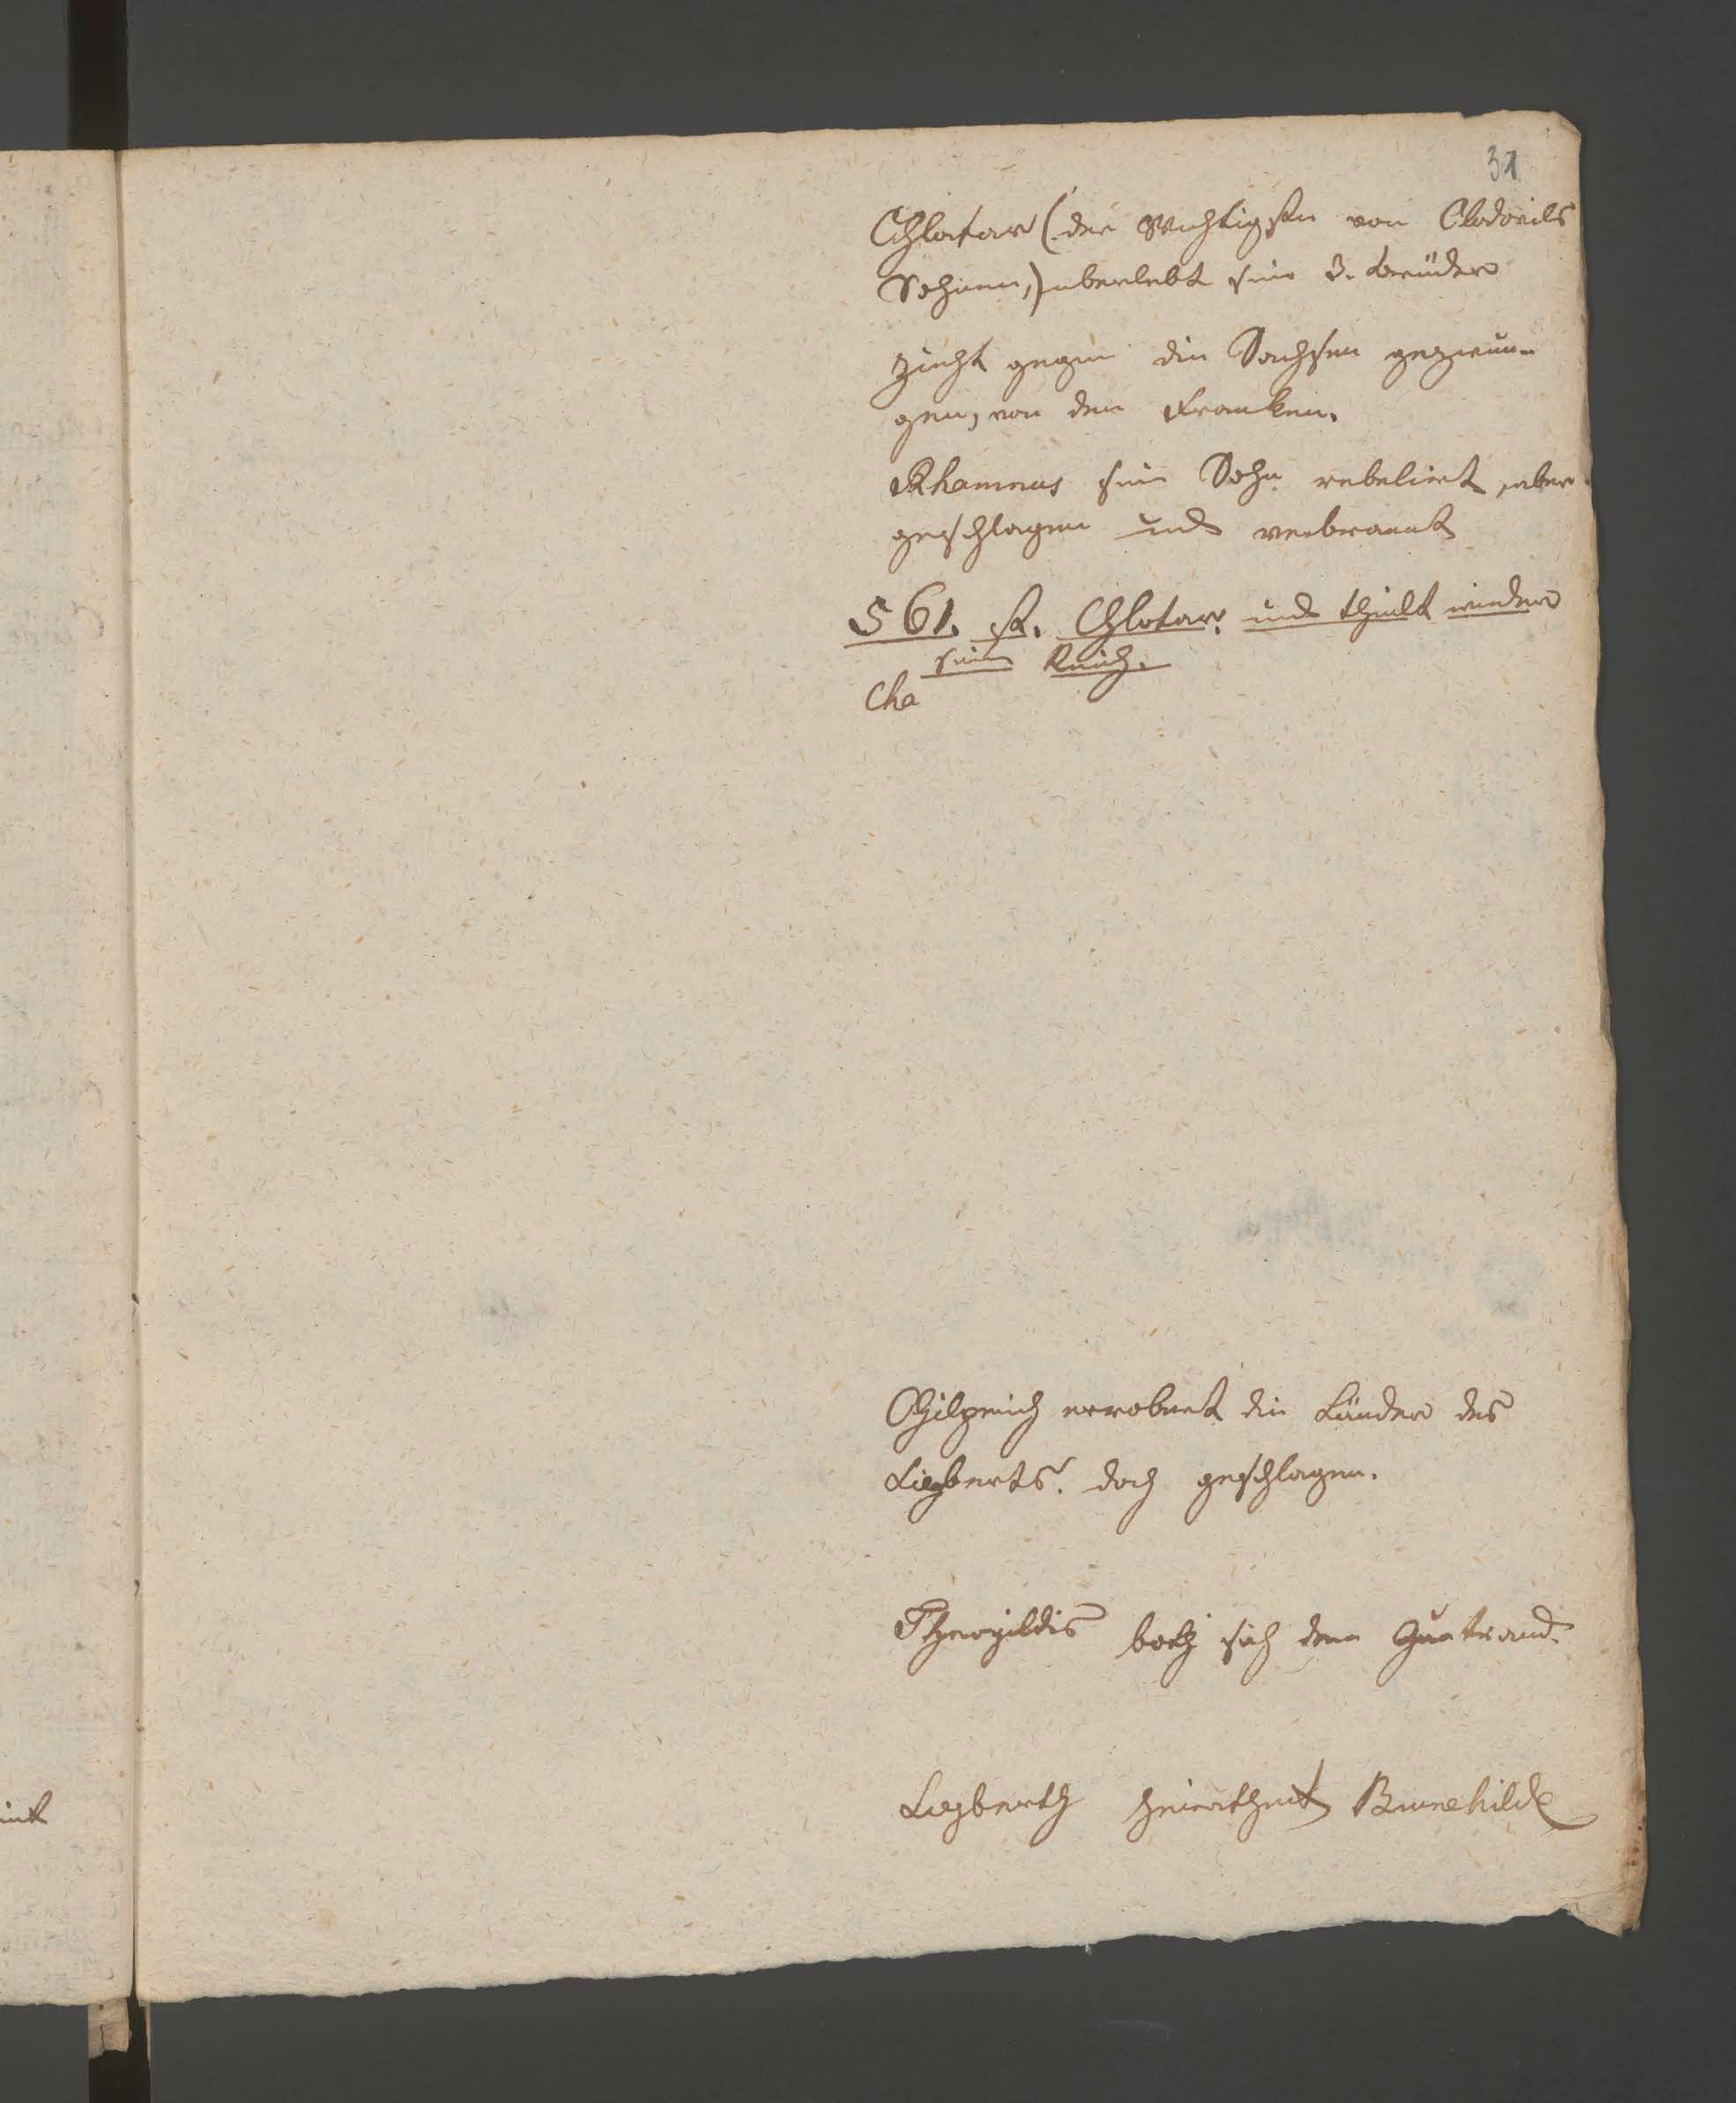 31
Chlotar (der Wichtigste von Clodovils
Sehnen,) uberlebt sein 3. Brüder
zieht gegen die Sachsen gezwun-
gen, von den Franken.
Rhamnus sein Sohn rebelirt, aber
geschlagen und verbrannt
561. st. Chlotar. und theilt wieder
sein Reich.
Cha
Chilperich errobert die Länder des
Siegberts. doch geschlagen.
Theogildis both sich dem Guntrand.
Siegberth heirathet Brunehilde
int